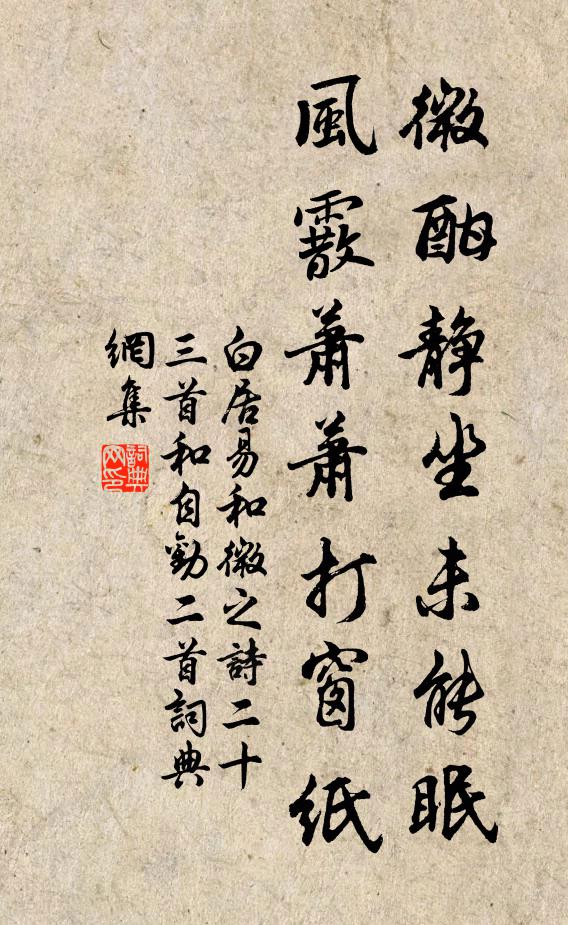 微酣静坐未能眠
風霰蕭蕭打窗紙
白居易和微之詩二十
三首和自勸二首詞典
網集
詞典
网印